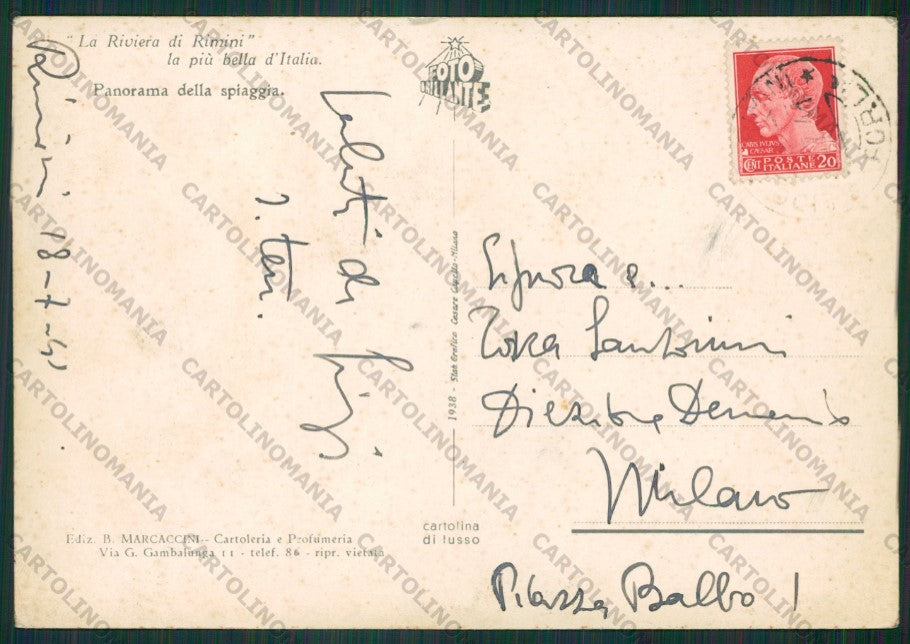 "La Riviera di Rimini"
la più bella d'Italia.
Panorama della spiaggia.
FOTO
BRILLANTE
CAIVS IVLIVS
CAESAR
CENT POSTE
ITALIANE 20
Rimini 18-7-
Saluti da
Signora e...
Santorini
Direzione Demanio
Milano
Piazza Balbo 1
1938 - Stab Grafico Cesare - Milano
cartolina
di lusso
Ediz. B. MARCACCINI-- Cartoleria e Profumeria
Via G. Gambalunga 11 - telef. 86 - ripr. vietata
CARTOLINOMANIA